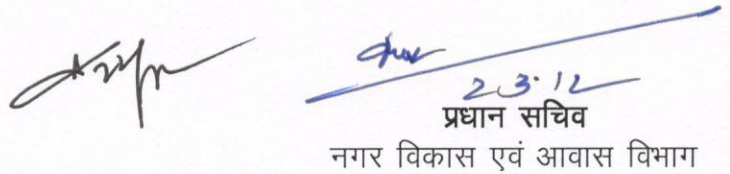 2.3.12
प्रधान सचिव
नगर विकास एवं आवास विभाग